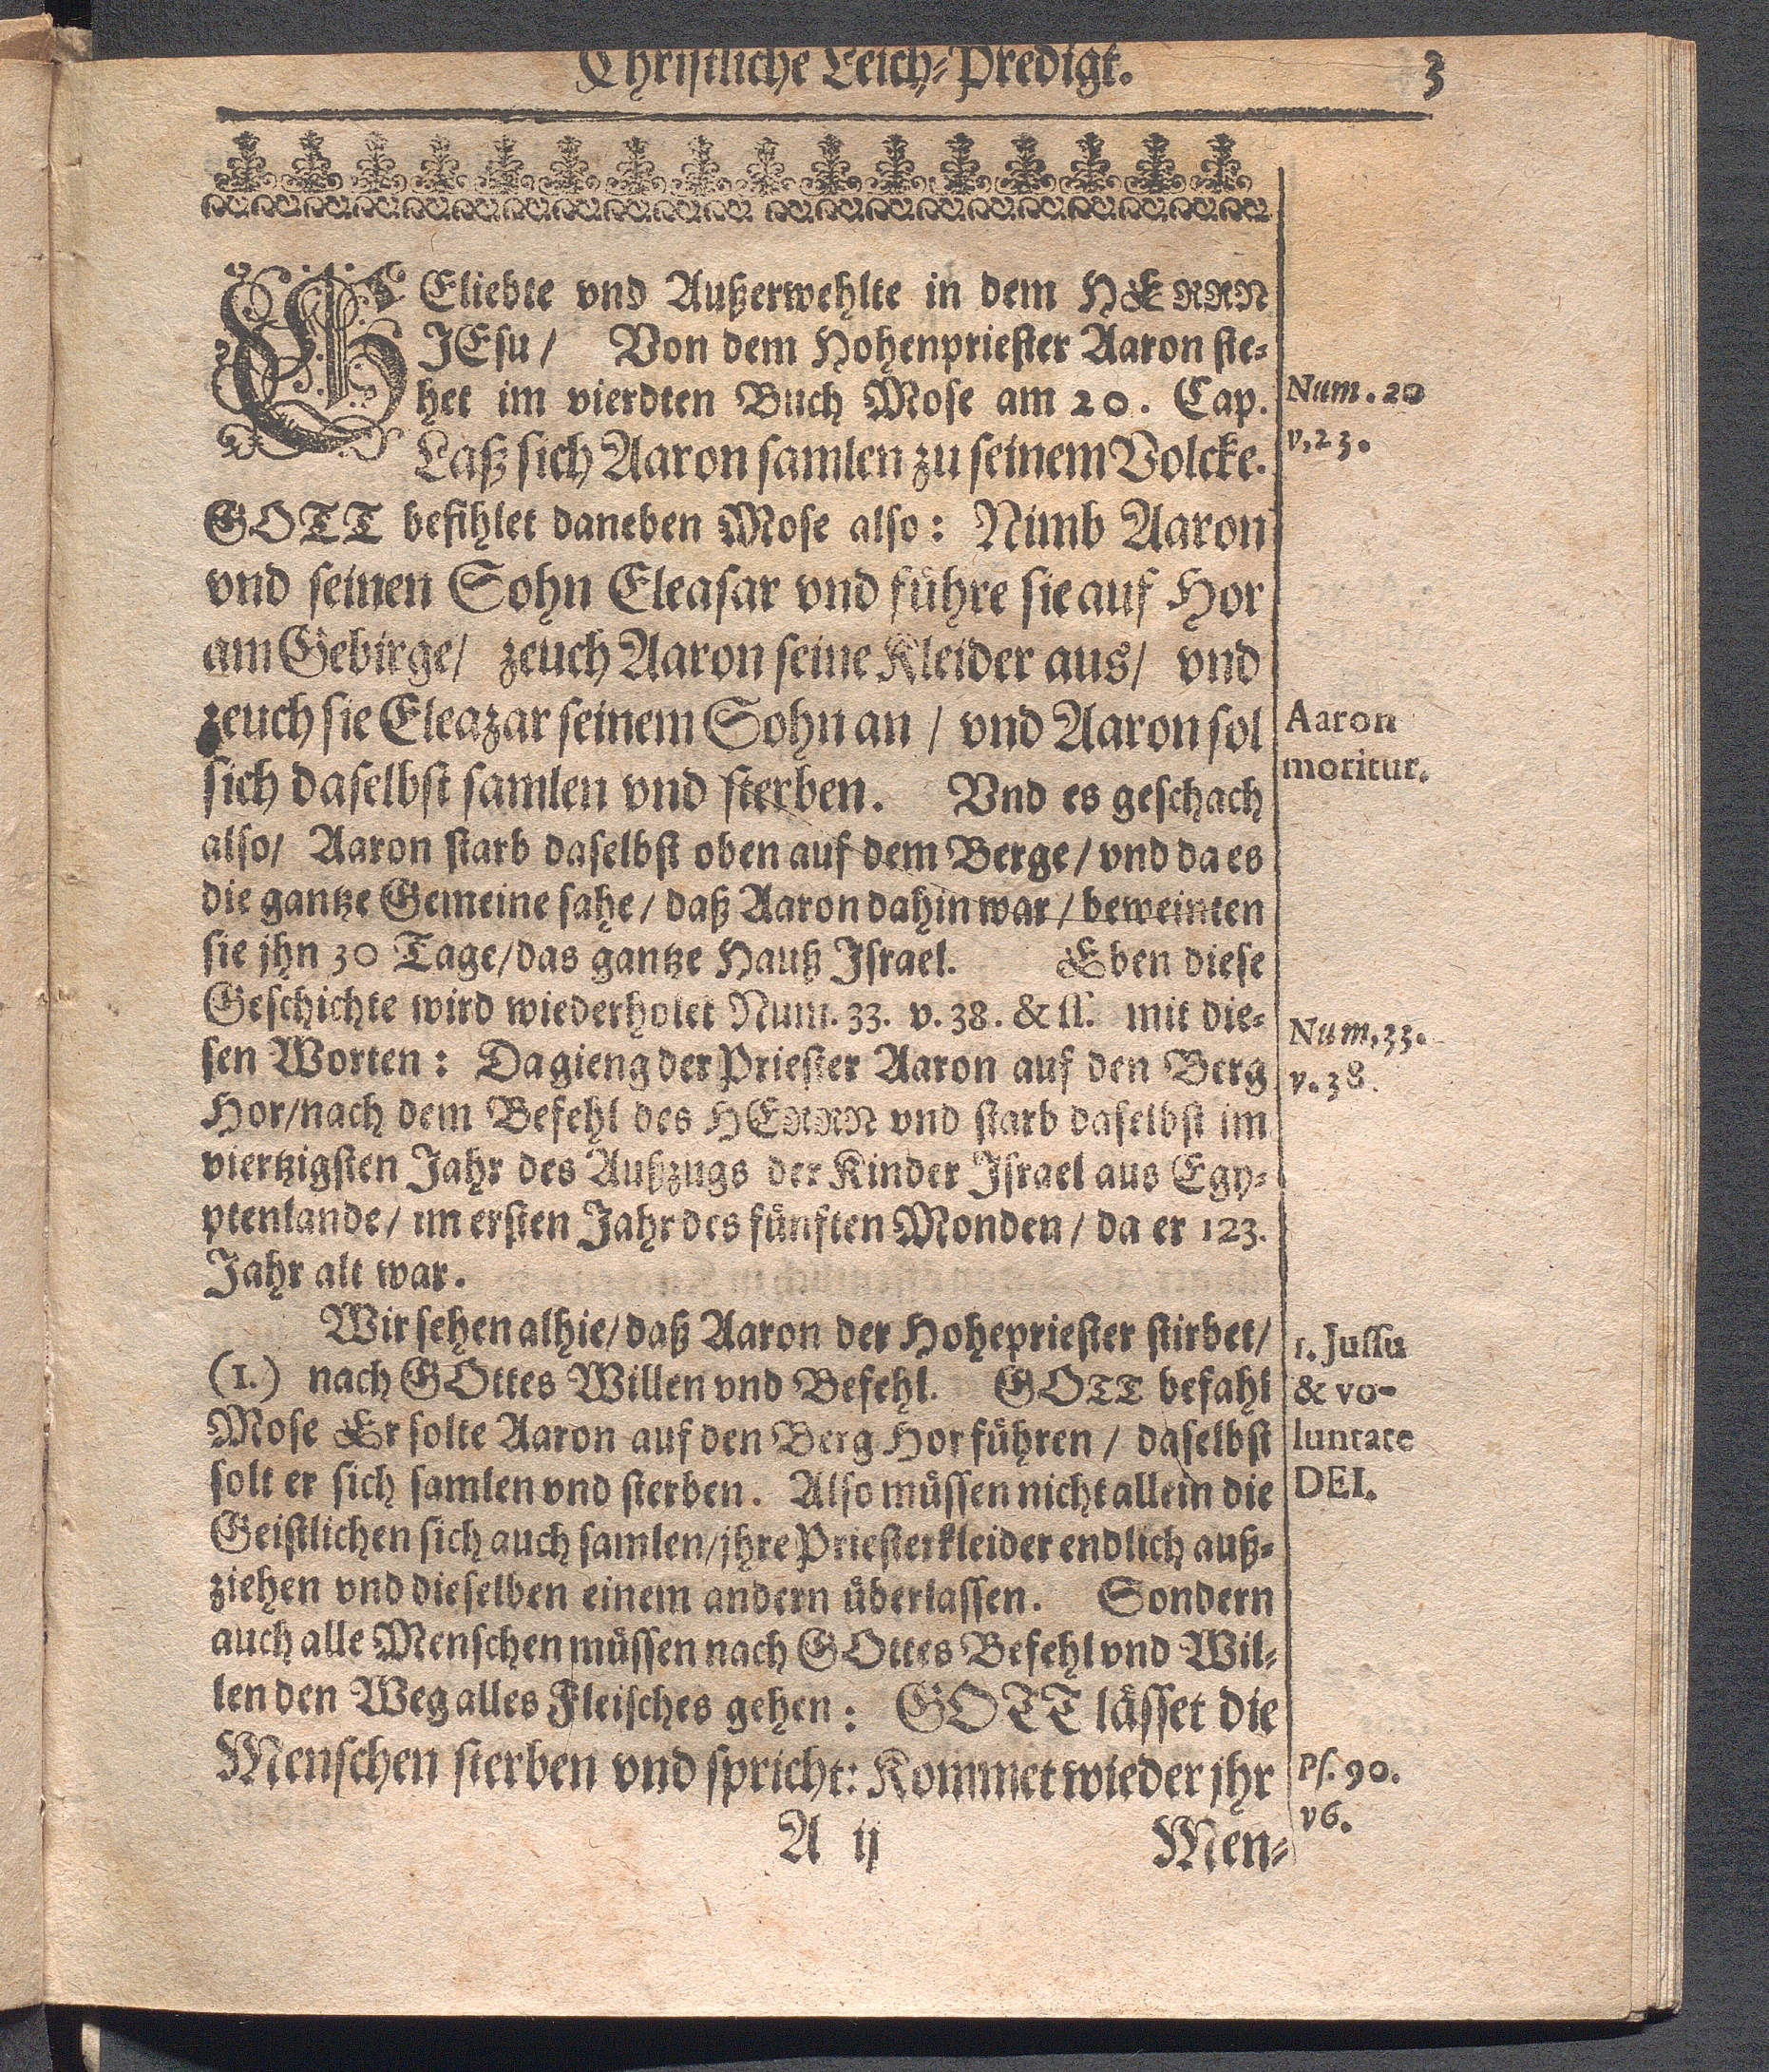 Christliche Leich-Predigt. 3
GEliebte vnd Außerwehlte in dem HERRN
JEsu / Von dem Hohenpriester Aaron ste-
het im vierdten Buch Mose am 20. Cap.
Num. 20
v, 23.
Laß sich Aaron samlen zu seinem Volcke.
GOTT befihlet daneben Mose also: Nimb Aaron
vnd seinen Sohn Eleasar vnd führe sie auf Hor
am Gebirge/ zeuch Aaron seine Kleider aus/ vnd
zeuch sie Eleazar seinem Sohn an / vnd Aaron sol
Aaron
moritur.
sich daselbst samlen vnd sterben. Vnd es geschach
also/ Aaron starb daselbst oben auf dem Berge / vnd da es
die gantze Gemeine sahe / daß Aaron dahin war / beweinten
sie jhn 30 Tage/das gantze Hauß Israel. Eben diese
Geschichte wird wiederholet Num. 33. v. 38. & ss. mit die-
Num, 33.
v. 38.
sen Worten: Da gieng der Priester Aaron auf den Berg
Hor/nach dem Befehl des HERRN vnd starb daselbst im
viertzigsten Jahr des Außzugs der Kinder Israel aus Egy-
ptenlande/ im ersten Jahr des fünften Monden / da er 123.
Jahr alt war.
Wir sehen alhie/ daß Aaron der Hohepriester stirbet/
1. Jussu
& vo-
luntate
DEI.
(1.) nach GOttes Willen vnd Befehl. GOTT befahl
Mose Er solte Aaron auf den Berg Hor führen / daselbst
solt er sich samlen vnd sterben. Also müssen nicht allein die
Geistlichen sich auch samlen/jhre Priesterkleider endlich auß-
ziehen vnd dieselben einem andern überlassen. Sondern
auch alle Menschen müssen nach GOttes Befehl vnd Wil-
len den Weg alles Fleisches gehen: GOTT lässet die
Menschen sterben vnd spricht: Kommet wieder jhr
Ps. 90.
v6.
A ij Men-